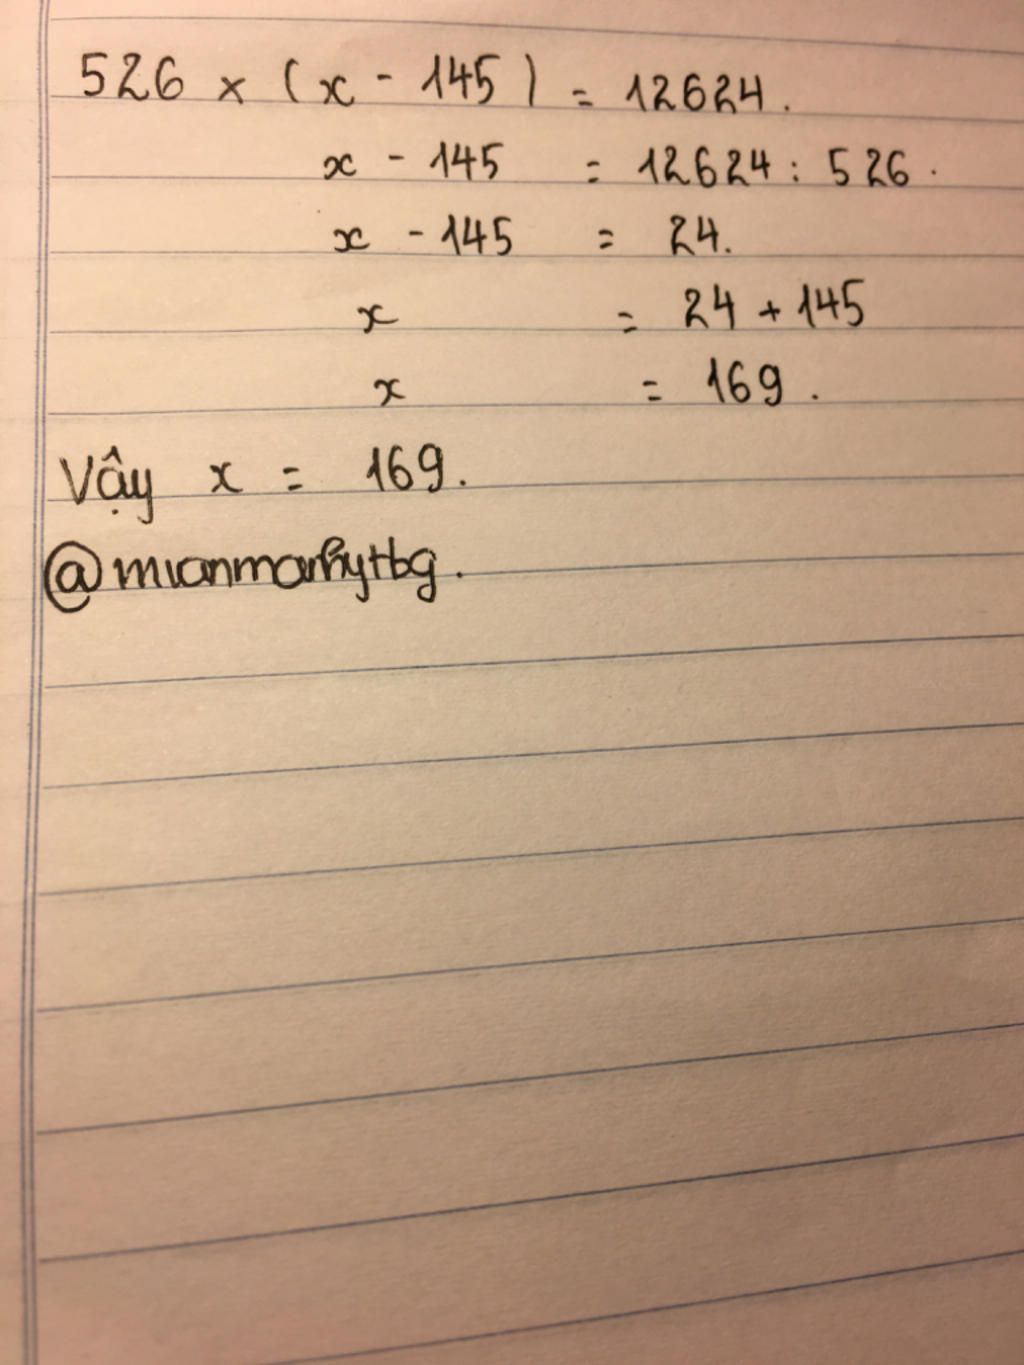 526 × (x - 145) = 12624.
x - 145 = 12624 : 526.
x - 145 = 24.
x = 24 + 145
x = 169.
Vậy x = 169.